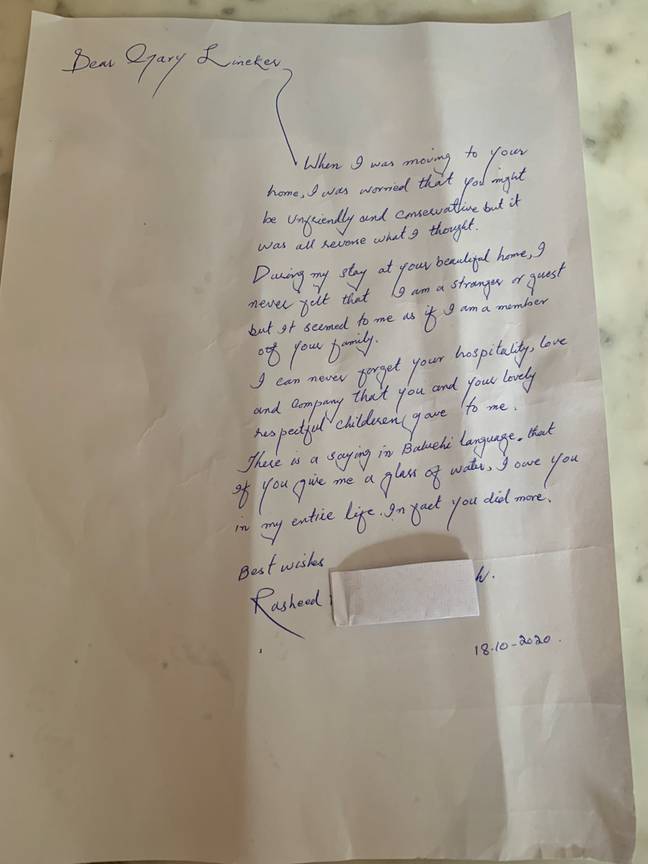 Dear Gary Lineker
When I was moving to your
home, I was worried that you might
be unfriendly and conservative but it
was all reverse what I thought.
During my stay at your beautiful home, I
never felt that I am a stranger or guest
but it seemed to me as if I am a member
of your family.
I can never forget your hospitality, love
and company that you and your lovely
respectful childeren gave to me.
There is a saying in Baluchi language. that
If you give me a glass of water, I owe you
in my entire life. In fact you did more.
Best wishes
Rasheed h.
18.10-2020.